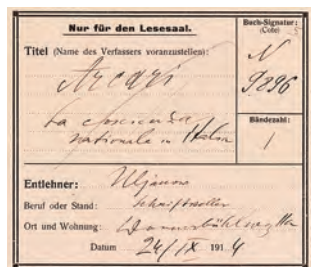 Nur für den Lesesaal.
Buch-Signatur:
(Cote)
Titel (Name des Verfassers voranzustellen):
N
Arcari
9896
la coscienza
nationale in Italia
Bändezahl:
1
Entlehner: Uljanow
Beruf oder Stand: Schriftsteller
Ort und Wohnung: Donnerbühlweg
Datum 24/IX 1914